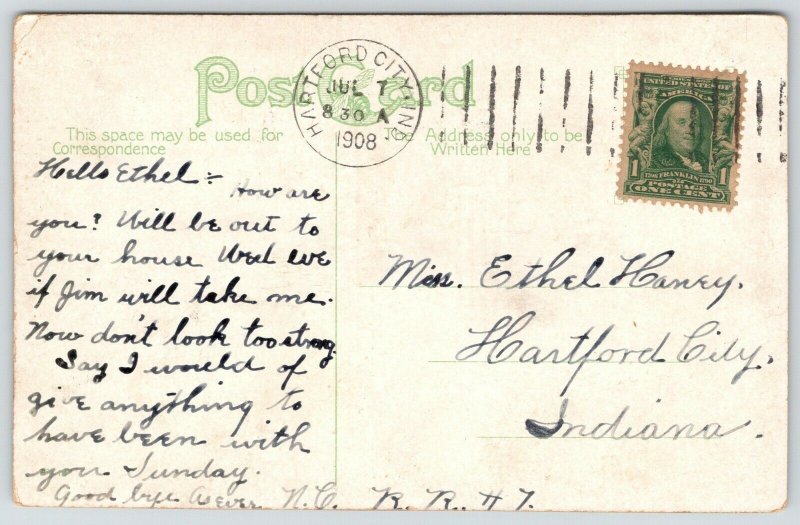 Post Card
HARTFORD CITY, IND.
JUL 7
8 30 A
1908
This space may be used for
Correspondence
The Address only to be
Written Here
UNITED STATES OF
AMERICA
1 FRANKLIN 1
POSTAGE
ONE CENT
Hello Ethel :-
How are
you? Will be out to
your house Wed eve
if Jim will take me.
Now don't look too strong
Say I would of
give anything to
have been with
you Sunday.
Good bye As ever N.C.
Miss. Ethel Haney.
Hartford City,
Indiana.
R. R. # 7.